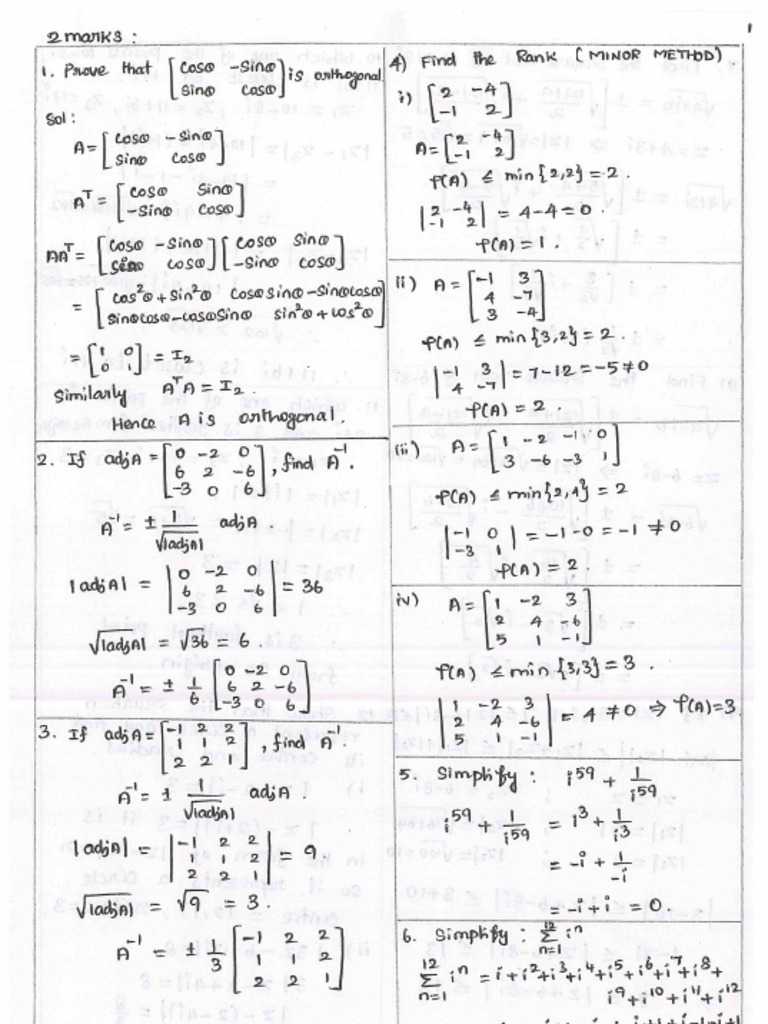 1
2 marks :
1. Prove that [cosθ -sinθ
sinθ cosθ] is orthogonal
Sol :
A = [cosθ -sinθ
sinθ cosθ]
Aᵀ = [cosθ sinθ
-sinθ cosθ]
AAᵀ = [cosθ -sinθ
sinθ cosθ] [cosθ sinθ
-sinθ cosθ]
= [cos²θ + sin²θ cosθ sinθ - sinθ cosθ
sinθ cosθ - cosθ sinθ sin²θ + cos²θ]
= [1 0
0 1] = I₂
Similarly AᵀA = I₂.
Hence A is orthogonal.
2. If adjA = [0 -2 0
6 2 -6
-3 0 6], find A⁻¹.
A⁻¹ = ± 1/√|adjA| adjA
|adjA| = |0 -2 0
6 2 -6
-3 0 6| = 36
√|adjA| = √36 = 6.
A⁻¹ = ± 1/6 [0 -2 0
6 2 -6
-3 0 6]
3. If adjA = [-1 2 2
1 1 2
2 2 1], find A⁻¹.
A⁻¹ = ± 1/√|adjA| adjA.
|adjA| = |-1 2 2
1 1 2
2 2 1| = 9
√|adjA| = √9 = 3.
A⁻¹ = ± 1/3 [-1 2 2
1 1 2
2 2 1]
4) Find the Rank (MINOR METHOD)
i) [2 -4
-1 2]
A = [2 -4
-1 2]
ρ(A) ≤ min{2,2} = 2.
|2 -4
-1 2| = 4-4 = 0.
ρ(A) = 1.
ii) A = [-1 3
4 -7
3 -4]
ρ(A) ≤ min{3,2} = 2.
|-1 3
4 -7| = 7-12 = -5 ≠ 0
ρ(A) = 2
iii) A = [1 -2 -1 0
3 -6 -3 1]
ρ(A) ≤ min{2,4} = 2
|-1 0
-3 1| = -1-0 = -1 ≠ 0
ρ(A) = 2.
iv) A = [1 -2 3
2 4 -6
5 1 -1]
ρ(A) ≤ min{3,3} = 3.
|1 -2 3
2 4 -6
5 1 -1| = 4 ≠ 0 ⇒ ρ(A) = 3
5. Simplify : i⁵⁹ + 1/i⁵⁹
i⁵⁹ + 1/i⁵⁹ = i³ + 1/i³
= -i + 1/-i
= -i + i = 0.
6. Simplify : 12 Σ iⁿ
12 Σ n=1 iⁿ = i + i² + i³ + i⁴ + i⁵ + i⁶ + i⁷ + i⁸ +
i⁹ + i¹⁰ + i¹¹ + i¹²